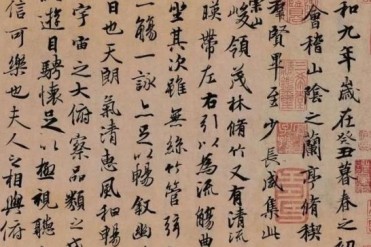 和九年歲在癸丑暮春之初
會稽山陰之蘭亭脩稧
羣賢畢至少長咸集此
崇山
峻領茂林脩竹又有清流
暎帶左右引以為流觴曲
坐其次雖無絲竹管弦
一觴一詠亦足以暢敘幽
日也天朗氣清惠風和暢
宇宙之大俯察品類之盛
遊目騁懷足以極視聽
信可樂也夫人之相與俯